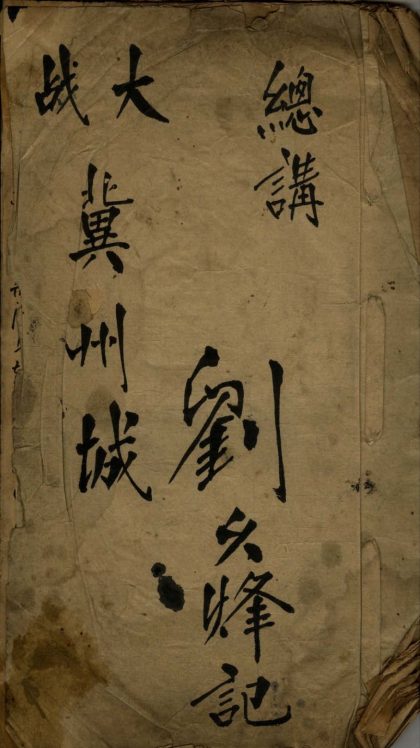 總講
大战
冀州城
劉少烽記